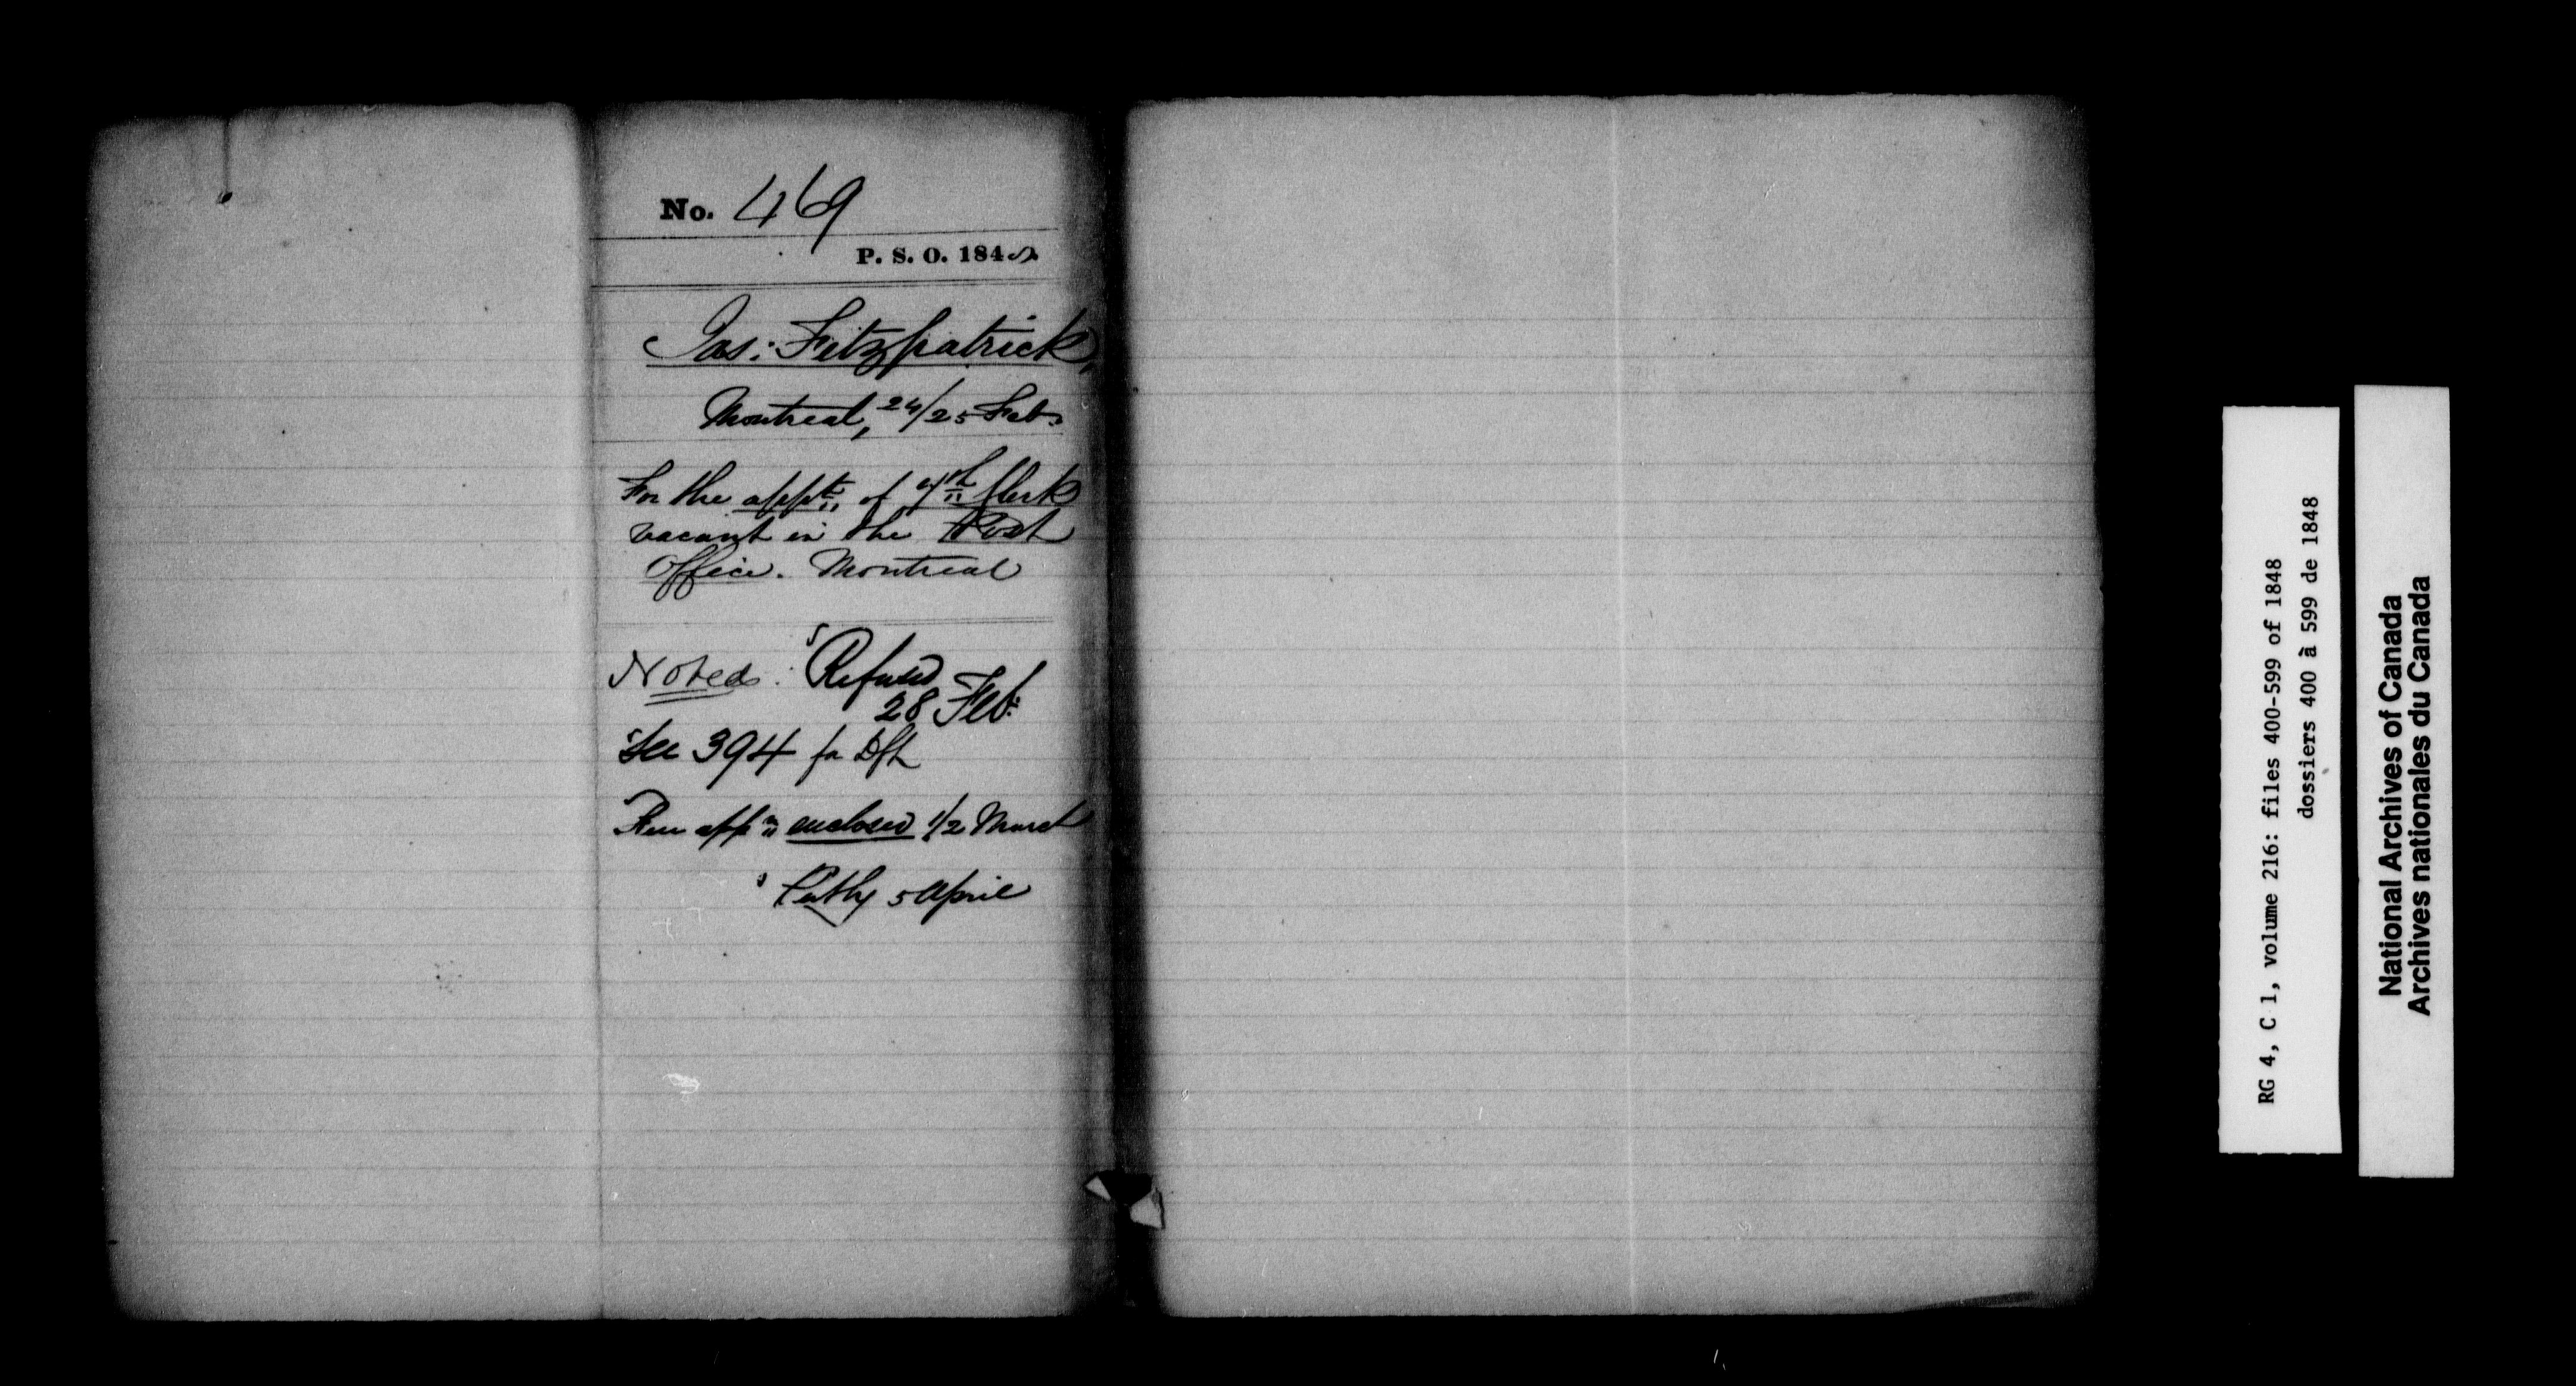 No. 469
P. S. O. 1848.
Jas: Fitzpatrick,
Montreal, 24/25 Feb.
For the appt. of 4th Clerk
vacant in the Post
Office. Montreal
Noted. Refused
28 Feb.
See 394 for Dft
appn enclosed 1/2 March
5 April
RG 4, C 1, volume 216: files 400-599 of 1848
dossiers 400 à 599 de 1848
National Archives of Canada
Archives nationales du Canada